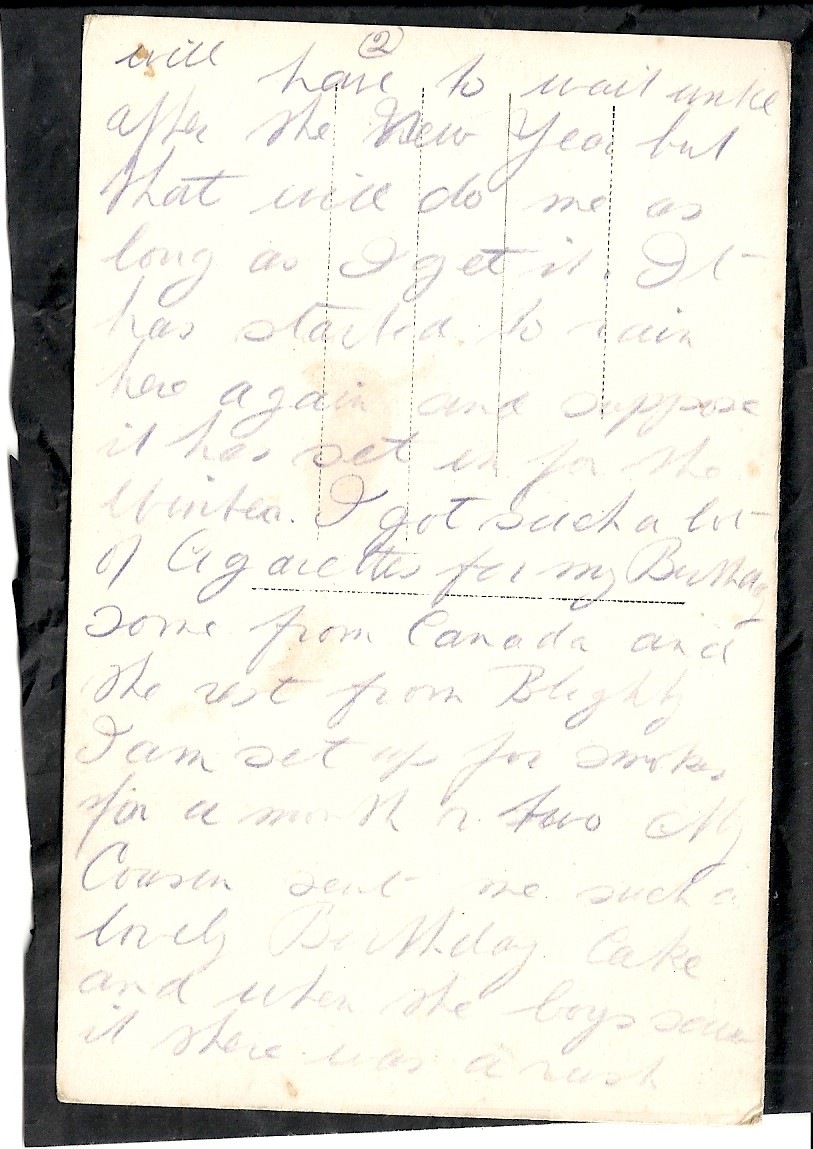 ②
will have to wait untill
after the New Year but
that will do me as
long as I get it. It
has started to rain
here again and suppose
it has set in for the
Winter. I got such a lot
of Cigarettes for my Birthday
some from Canada and
the rest from Blighty
I am set up for smokes
for a month or two My
Cousin sent me such a
lovely Birthday Cake
and when the boys saw
it there was a rush